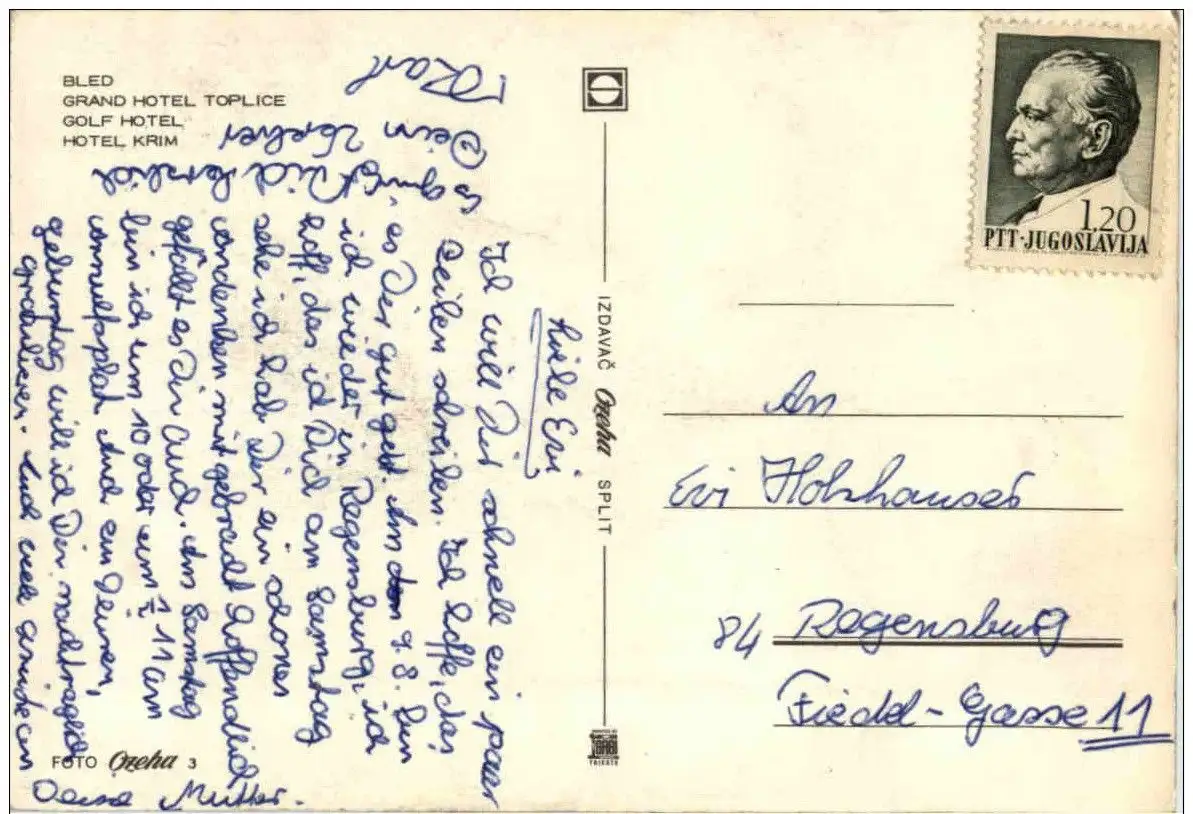 BLED
GRAND HOTEL TOPLICE
GOLF HOTEL
HOTEL KRIM
Liebe Evi
Ich will Dir schnell ein paar
Zeilen schreiben. Ich hoffe, das
es Dir gut geht. Am 7.8. bin
ich wieder in Regensburg, ich
hoff, das ich Dich am Samstag
sehe ich hab Dir ein schönes
andenken mit gebracht hoffendlich
gefällt es Dir Auch. Am Samstag
bin ich um 10 oder um ½ 11 am
Und an Deinen,
geburtstag will ich Dir nachtraglich
gratulieren. Und viele an
Deine Mutter.
Es grüßt Dich herzlich
Dein
Karl
IZDAVAČ Ozeha SPLIT
PTT·JUGOSLAVIJA
1.20
An
Evi Holzhauser
84 Regensburg
Fiedel-Gasse 11
FOTO Ozeha 3
TRIESTE